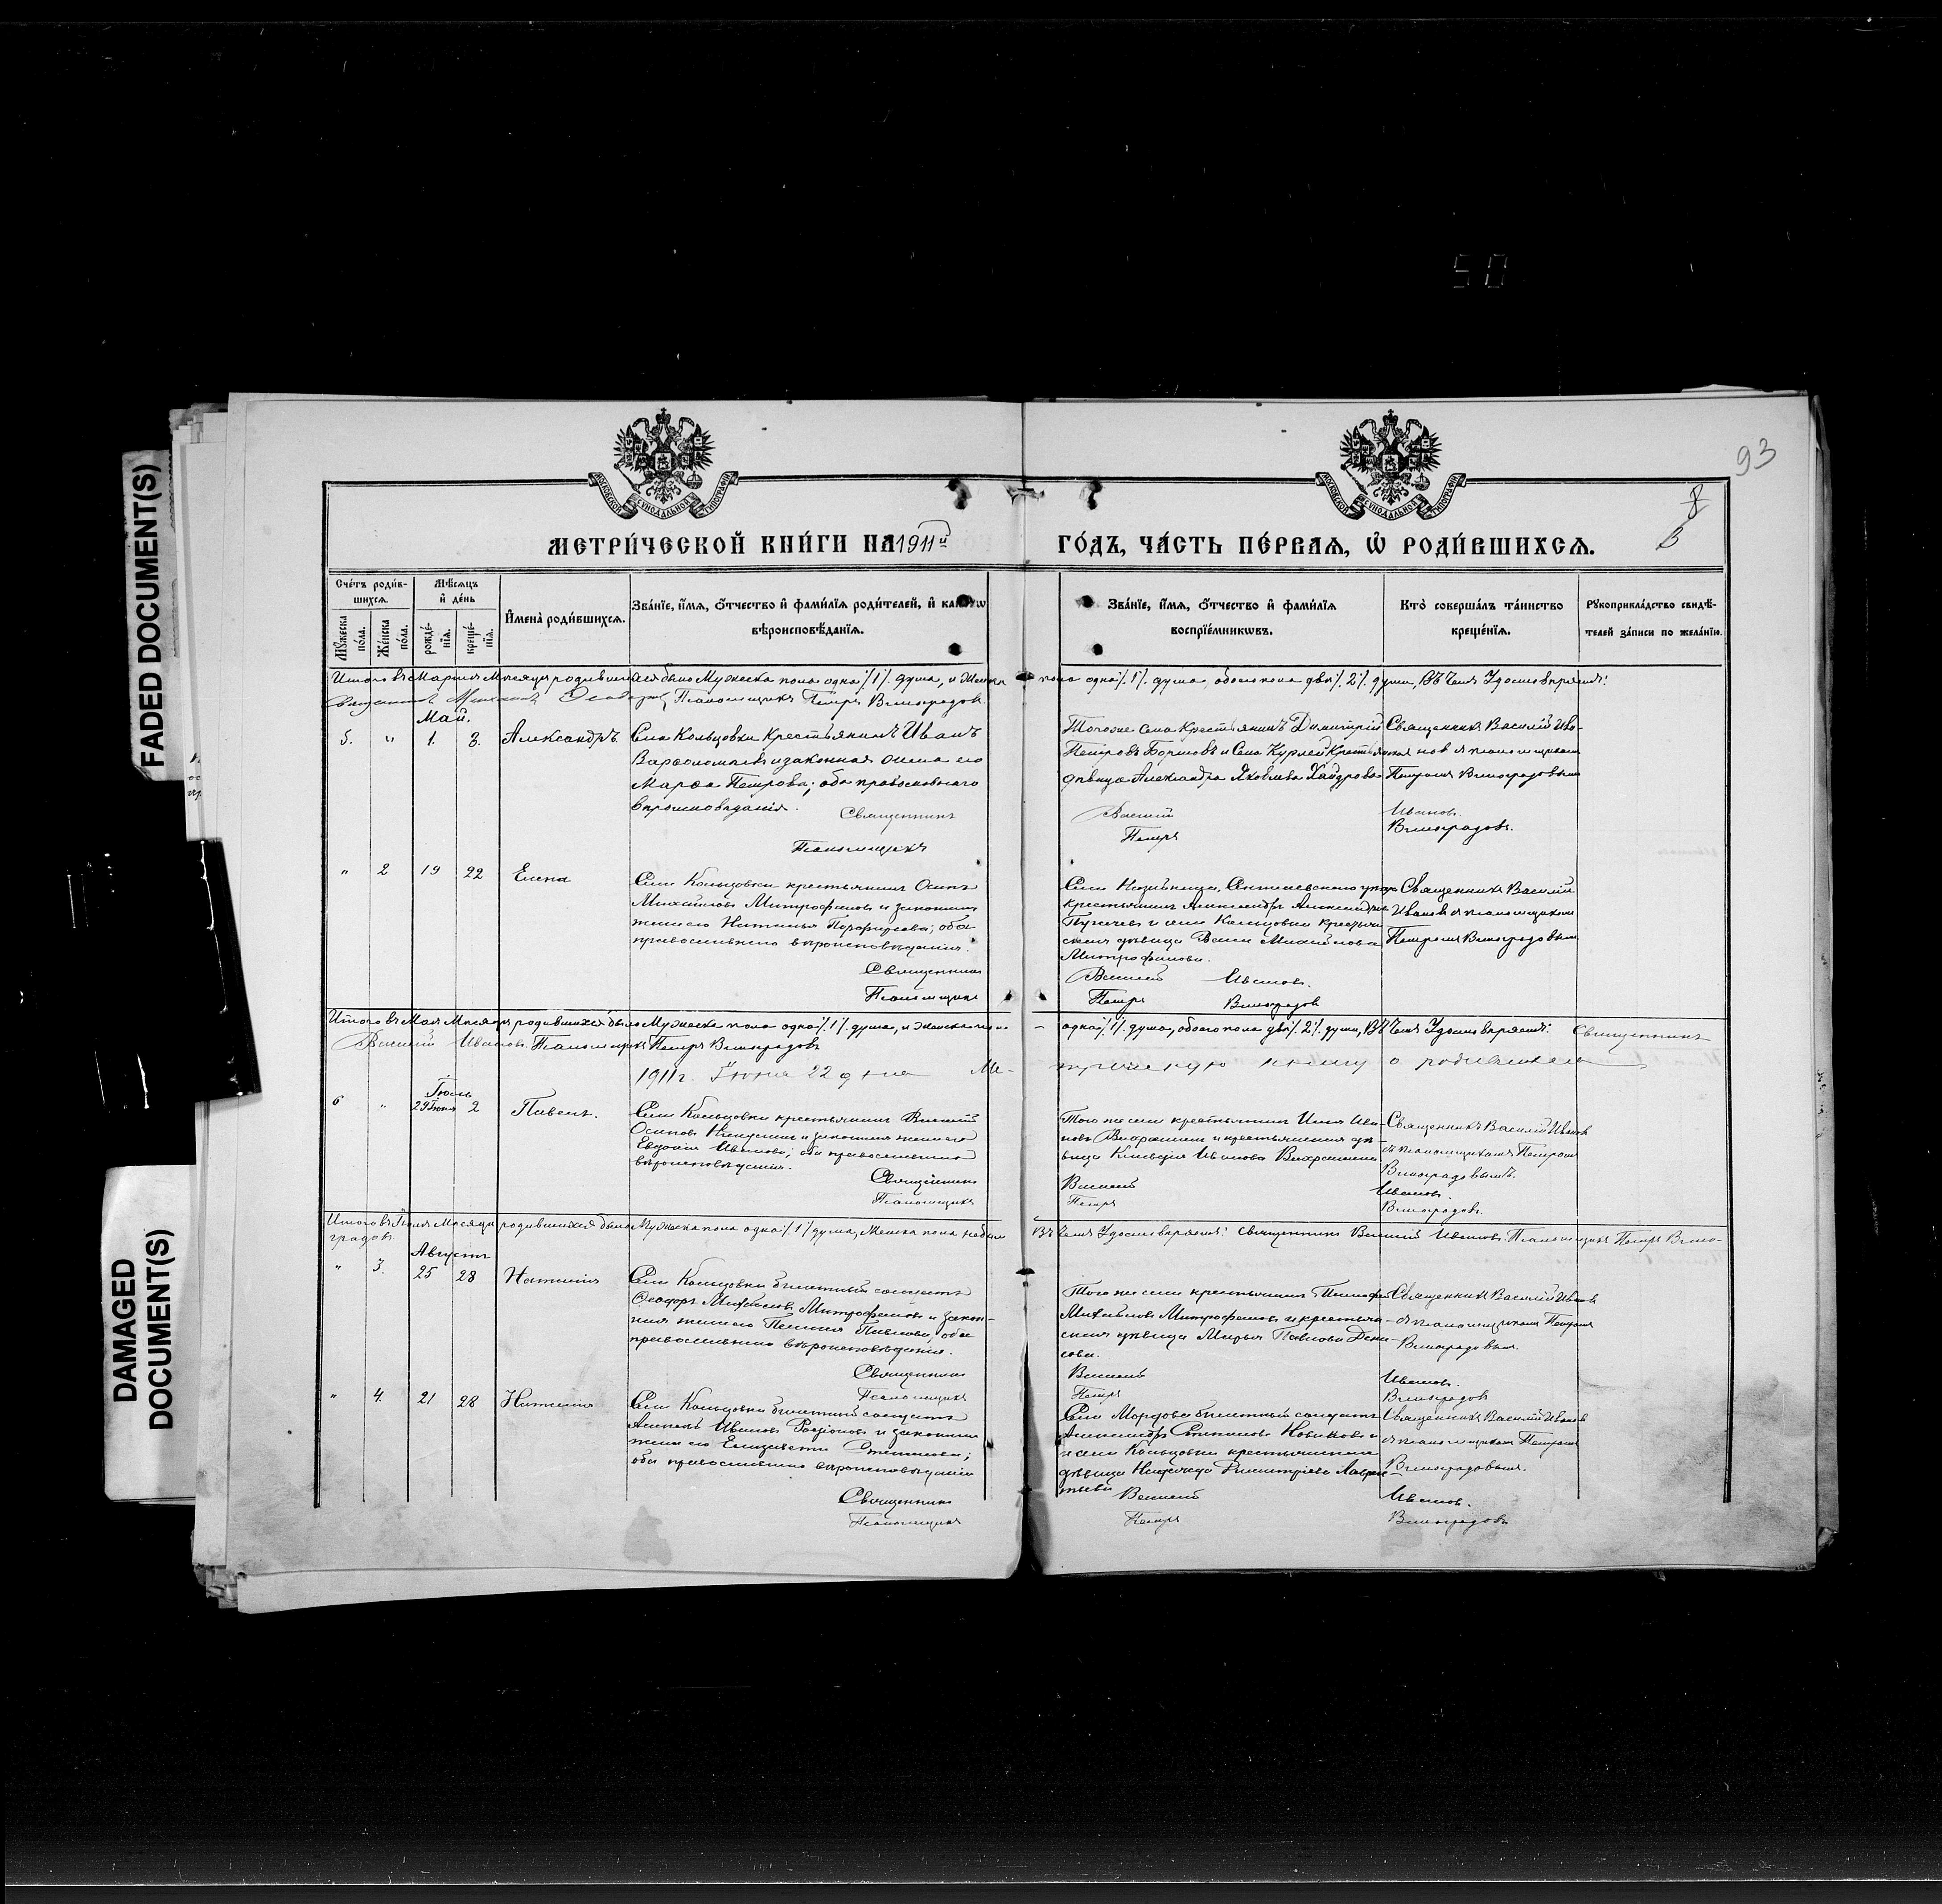 50
FADED DOCUMENT(S)
DAMAGED
DOCUMENT(S)
93
8
МОСКОВСКОЙ СУНОДАЛЬНОЙ ТИПОГРАФІИ
МОСКОВСКОЙ СУНОДАЛЬНОЙ ТИПОГРАФІИ
МЕТРИ́ЧЕСКОЙ КНИ́ГИ НА 1911й ГО́ДЪ, ЧА́СТЬ ПЕ́РВАЯ, Ѡ҆ РОДИ́ВШИХСЯ.
Сче́тъ роди́в-
шихся.
Мꙋ́жеска по́ла.
Же́нска по́ла.
Мѣ́сяцъ
и҆ де́нь
рожде́-
нїя.
креще́-
нїя.
И҆мена̀ роди́вшихся.
Зва́нїе, и҆́мя, о҆́тчество и҆ фами́лїя роди́телей, и҆ како́гѡ
вѣроисповѣ́данїя.
Зва́нїе, и҆́мя, о҆́тчество и҆ фами́лїя
воспрїе́мникѡвъ.
Кто̀ соверша́лъ та́инство
креще́нїя.
Рꙋкоприкла́дство свидѣ́-
телей за́писи по жела́нїю.
Итого въ Мартѣ Мѣсяцѣ родившихся было Мужеска пола одна % 1 % душа, и Женска пола одна % 1 % душа, обоего пола двѣ % 2 % души, Въ чемъ Удостовѣряемъ:
Псаломщикъ Петръ Виноградовъ.
Май.
5. " 1. 3. Александръ
Села Кольцовки Крестьянинъ Иванъ
Варѳоломѣевъ и законная жена его
Марѳа Петрова; оба православнаго
вѣроисповѣданія.
Священникъ
Псаломщикъ
Тогоже Села Крестьянинъ Димитрій
Петровъ и Села Крестьянская
дѣвица Александра Яковлева
Василій
Петръ
Священникъ Василій Ива-
новъ съ псаломщикомъ
Петромъ Виноградовымъ
Ивановъ.
Виноградовъ.
" 2 19 22 Елена
Села Кольцовки крестьянинъ Осипъ
Михайловъ Митрофановъ и законная
жена его Наталья Порфирьева; оба
православнаго вѣроисповѣданія.
Священникъ
Псаломщикъ
Села
крестьянинъ Александръ Александровъ
и села Кольцовки крестьян-
ская дѣвица Михайлова
Митрофанова.
Василій Ивановъ.
Петръ Виноградовъ
Священникъ Василій
Ивановъ съ псаломщикомъ
Петромъ Виноградовымъ.
Итого въ Маѣ Мѣсяцѣ родившихся было Мужеска пола одна % 1 % душа, и женска пола – одна % 1 % душа, обоего пола двѣ % 2 % души, Въ чемъ Удостовѣряемъ: Священникъ
Василій Ивановъ. Псаломщикъ Петръ Виноградовъ
1911 г. Іюня 22 дня Ме- трическую книгу о родившихся
Іюль
6 " 29 Іюня 2 Павелъ.
Села Кольцовки крестьянинъ Василій
Осиповъ и законная жена его
Евдокія Иванова; оба православнаго
вѣроисповѣданія.
Священникъ
Псаломщикъ
Того же села крестьянинъ Илья Ива-
новъ и крестьянская дѣ-
вица Клавдія Иванова
Василій
Петръ
Священникъ Василій Ивановъ
съ псаломщикомъ Петромъ
Виноградовымъ.
Ивановъ.
Виноградовъ.
Итого въ Іюлѣ Мѣсяцѣ родившихся было Мужеска пола одна % 1 % душа, Женска пола небыло Въ чемъ Удостовѣряемъ: Священникъ Василій Ивановъ. Псаломщикъ Петръ Вино-
градовъ.
Августъ
" 3. 25 28 Наталія
Села Кольцовки билетный солдатъ
Ѳеодоръ Михайловъ Митрофановъ и закон-
ная жена его Пелагія Павлова; оба
православнаго вѣроисповѣданія.
Священникъ
Псаломщикъ
Того же села крестьянинъ Тимофей
Михайловъ Митрофановъ и крестьян-
ская дѣвица Марья Павлова Дени-
сова.
Василій
Петръ
Священникъ Василій Ивановъ
съ псаломщикомъ Петромъ
Виноградовымъ.
Ивановъ.
Виноградовъ
" 4. 21 28 Наталія
Села Кольцовки билетный солдатъ
Ивановъ Родіоновъ и законная
жена его Елизавета Степанова;
оба православнаго вѣроисповѣданія
Священникъ
Псаломщикъ
Села Мордова билетный солдатъ
Александръ Степановъ Новиковъ и
села Кольцовки крестьянская
дѣвица Надежда Димитріева Лаврен-
тьева
Василій
Петръ
Священникъ Василій Ивановъ
съ псаломщикомъ Петромъ
Виноградовымъ.
Ивановъ.
Виноградовъ